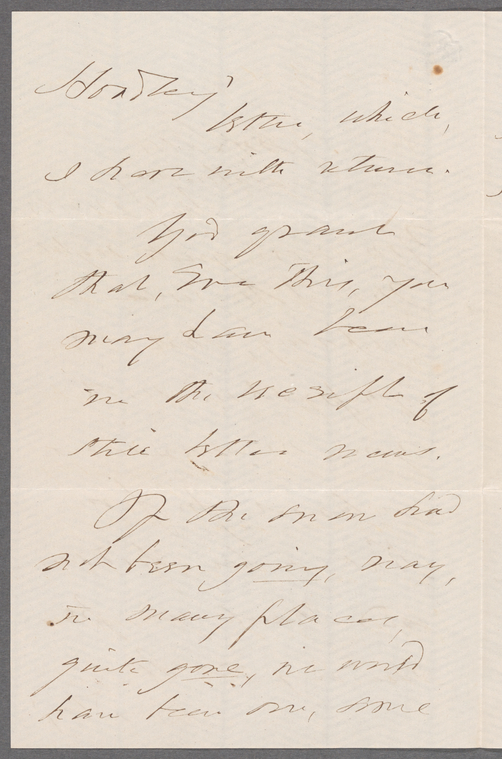 Hoadley's
letter, which,
I here with return.
God grant
that, ere this, you
may have been
in the receipt of
still better news.
If the snow had
not been going, nay,
in many places,
quite gone, we would
have been over, some